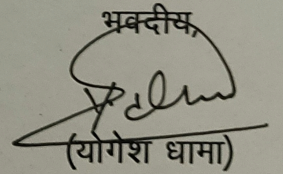 भवदीय,
(योगेश धामा)